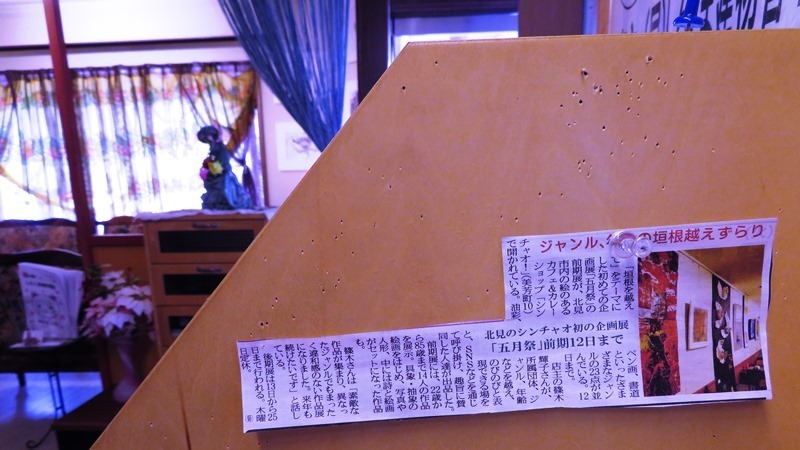 ジャンル、
の垣根越えずらり
北見のシンチャオ初の企画展
「五月祭」前期12日まで
「垣根を越え
て」をテーマに
した初めての企
画展「五月祭」の
前期展が、北見
市内の絵のある
カフェ&カレー
ショップ「シン
チャオ!」(美芳町10)
で開かれている。油彩、
ペン画、書道
といったさま
ざまなジャン
ルの23点が並
んでいる。12
日まで。
店主の篠木
輝子さんが、
所属団体、ジ
ャンル、年齢
などを越え、
のびのびと表
現できる場を
と、SNSなどを通じ
て呼び掛け、趣旨に賛
同した人達が出品した。
前期展には、22歳か
ら85歳まで14人の作品
を展示。具象・抽象の
絵画をはじめ、写真や
人形、中には詩と絵画
がセットになった作品
も。
篠木さんは「素敵な
作品が集まり、異なっ
たジャンルでもまった
く違和感のない作品展
になりました。来年も
続けたいです」と話し
ている。
後期展は13日から25
日まで行われる。木曜
日定休。